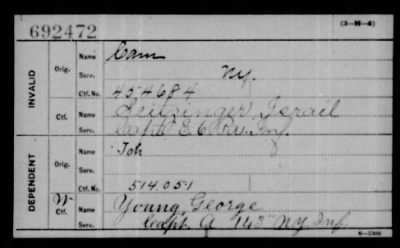 (3-H-4)
692472
INVALID
Orig.
Name Cam
Serv. Ny.
Ctf. No. 454684
Ctf.
Name Leitzinger, Israil
Serv. Capt E 6 Inf
DEPENDENT
Orig.
Name Joh
Serv.
Ctf. No. 514.051
W
Ctf.
Name Young, George
Serv. Capt. A 143" NY Inf.